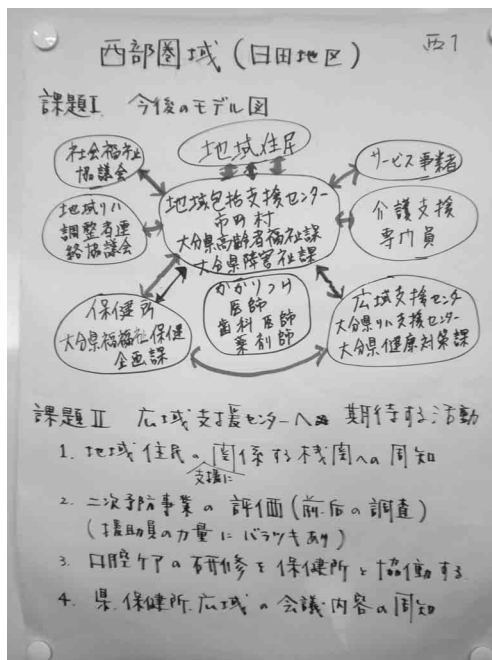 西部圏域(日田地区)
西1
課題Ⅰ 今後のモデル図
社会福祉
協議会
地域住民
サービス事業者
地域リハ
調整者連
絡協議会
地域包括支援センター
市町村
大分県高齢者福祉課
大分県障害福祉課
介護支援
専門員
保健所
大分県福福祉保健
企画課
かかりつけ
医師
歯科医師
薬剤師
広域支援センター
大分県リハ支援センター
大分県健康対策課
課題Ⅱ 広域支援センターへ 期待する活動
1. 地域住民の関係する機関への周知
支援に
2. 二次予防事業の評価(前.后の調査)
(援助員の力量にバラツキあり)
3. 口腔ケアの研修を保健所と協働する
4. 県.保健所.広域の会議内容の周知